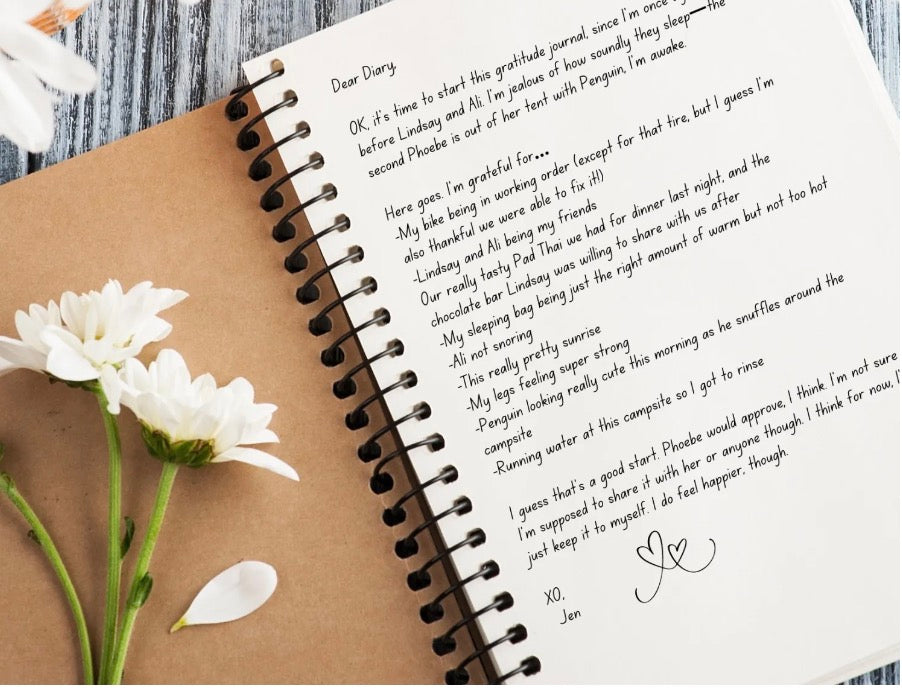 Dear Diary,
OK, it's time to start this gratitude journal, since I'm once
before Lindsay and Ali. I'm jealous of how soundly they sleep—the
second Phoebe is out of her tent with Penguin, I'm awake.
Here goes. I'm grateful for...
-My bike being in working order (except for that tire, but I guess I'm
also thankful we were able to fix it!)
-Lindsay and Ali being my friends
Our really tasty Pad Thai we had for dinner last night, and the
chocolate bar Lindsay was willing to share with us after
-My sleeping bag being just the right amount of warm but not too hot
-Ali not snoring
-This really pretty sunrise
-My legs feeling super strong
-Penguin looking really cute this morning as he snuffles around the
campsite
-Running water at this campsite so I got to rinse
I guess that's a good start. Phoebe would approve, I think. I'm not sure
I'm supposed to share it with her or anyone though. I think for now,
just keep it to myself. I do feel happier, though.
XO,
Jen